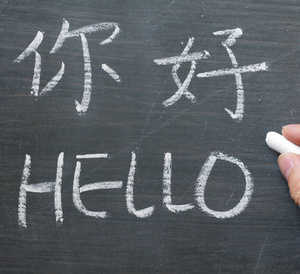 你好
HELLO